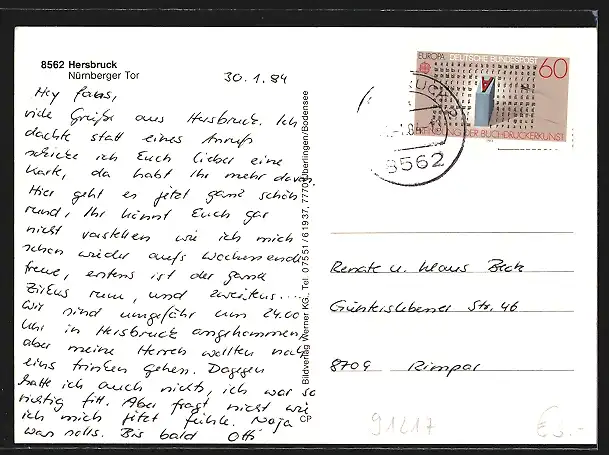 8562 Hersbruck
Nürnberger Tor
30.1.84
Hey Paras,
viele Grüße aus Hersbruck. Ich
dachte statt eines Anrufs
schicke ich Euch lieber eine
Karte, da habt Ihr mehr davon.
Hier geht es jetzt ganz schön
rund, Ihr könnt Euch gar
nicht vorstellen wie ich mich
schon wieder aufs Wochenende
freue, erstens ist der ganze
Zirkus rum, und zweitens....
Wir sind ungefähr um 24.00
Uhr in Hersbruck angekommen,
aber meine Herren wollten noch
eins trinken gehen. Dagegen
hatte ich auch nichts, ich war so
richtig fit. Aber fragt nicht wie
ich mich jetzt fühle. Naja
was solls. Bis bald Otti
Bildverlag Werner KG., Tel. 07551/61937, 7770 Überlingen/Bodensee
CP
EUROPA DEUTSCHE BUNDESPOST
60
ERFINDUNG DER BUCHDRUCKERKUNST
8562
Renate u. Klaus Beck
Günterslebener Str. 46
8709 Rimpar
91217
€3.-